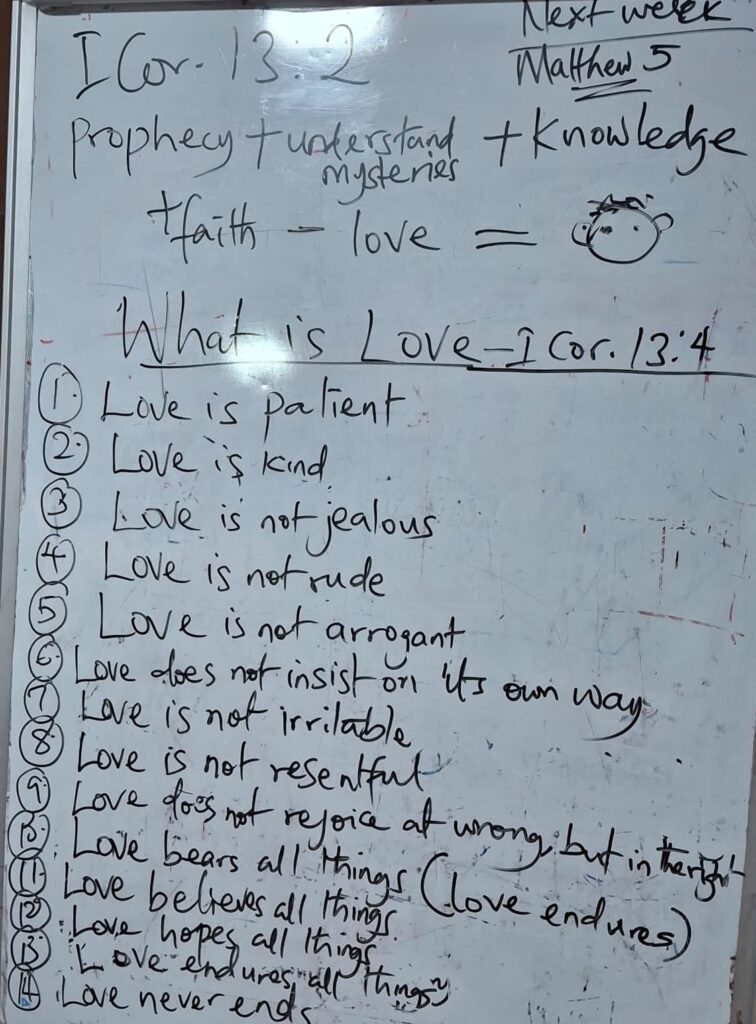 Next week
I Cor. 13:2
Matthew 5
prophecy + understand mysteries + knowledge
+ faith - love =
What is Love - I Cor. 13:4
1. Love is patient
2. Love is kind
3. Love is not jealous
4. Love is not rude
5. Love is not arrogant
6. Love does not insist on it's own way
7. Love is not irritable
8. Love is not resentful
9. Love does not rejoice at wrong, but in the right
10. Love bears all things (love endures)
11. Love believes all things
12. Love hopes all things
13. Love endures all things
14. Love never ends